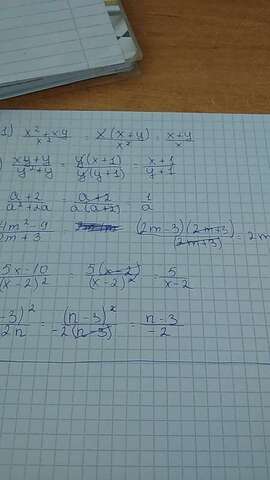 1) x² + xy / x² = x(x+y) / x² = x+y / x
) xy+y / y²+y = y(x+1) / y(y+1) = x+1 / y+1
a+2 / a²+2a = a+2 / a(a+2) = 1 / a
4m²-9 / 2m+3 (2m-3)(2m+3) / (2m+3) = 2m
5x-10 / (x-2)² = 5(x-2) / (x-2)² = 5 / x-2
-3)² / -2n = (n-3)² / -2(n-3) = n-3 / -2